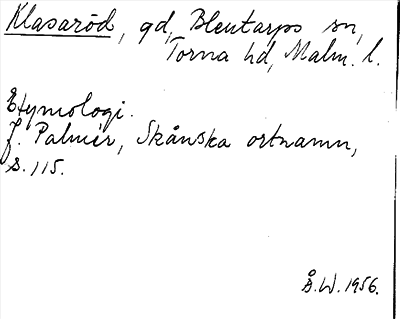 Klasaröd, gd, Blentarps sn,
Torna hd, Malm. l.
Etymologi.
J. Palmér, Skånska ortnamn,
s. 115.
Å.W. 1956.